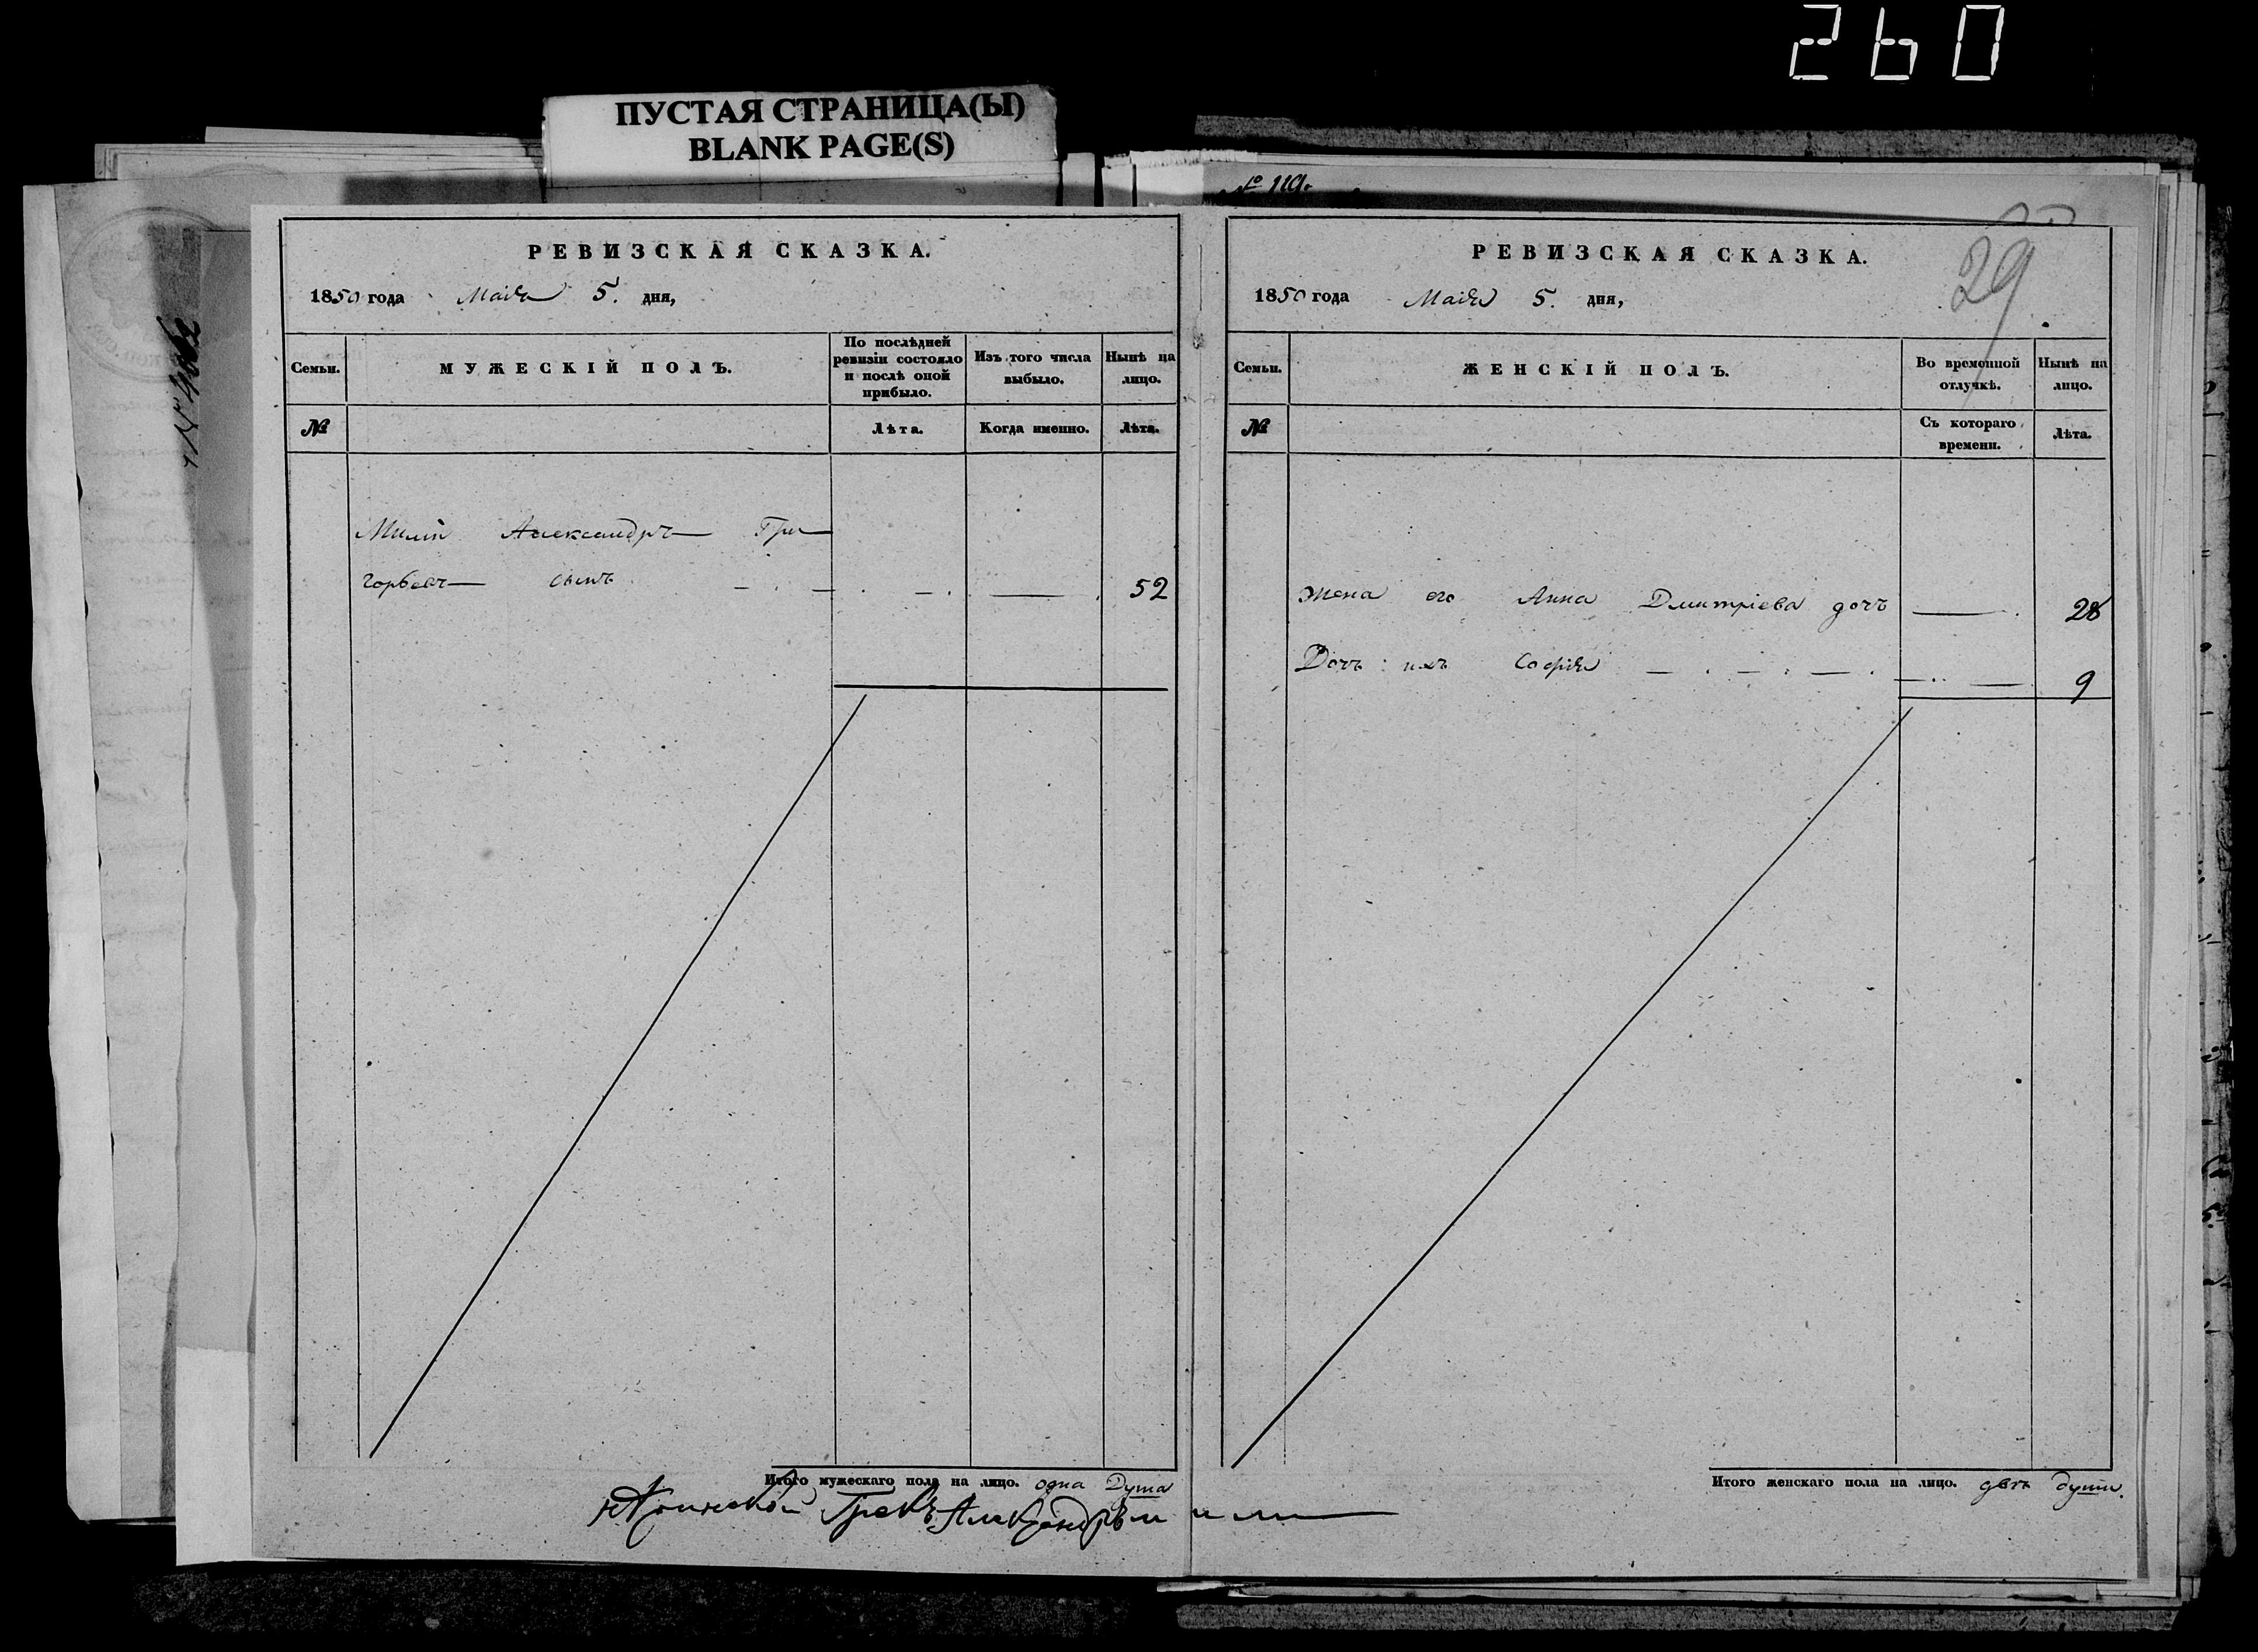 260
ПУСТАЯ СТРАНИЦА(Ы)
BLANK PAGE(S)
№ 119.
РЕВИЗСКАЯ СКАЗКА.
1850 года Маія 5. дня,
Семьи.
МУЖЕСКІЙ ПОЛЪ.
По послѣдней ревизіи состояло и послѣ оной прибыло.
Изъ того числа выбыло.
Нынѣ на лицо.
№
Лѣта.
Когда именно.
Лѣта.
Александръ Гри
горьевъ сынъ 52
Итого мужескаго пола на лицо. одна душа
Грекъ Александръ
29
РЕВИЗСКАЯ СКАЗКА.
1850 года Маія 5. дня,
Семьи.
ЖЕНСКІЙ ПОЛЪ.
Во временной отлучкѣ.
Нынѣ на лицо.
№
Съ котораго времени.
Лѣта.
Жена его Анна Дмитріева дочь 28
Дочь ихъ Софія 9
Итого женскаго пола на лицо. двѣ души.